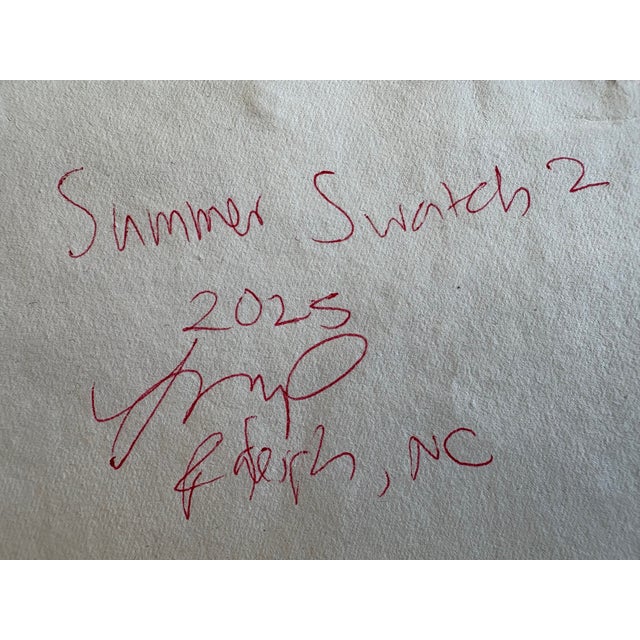 Summer Swatch 2
2025
Raleigh, NC